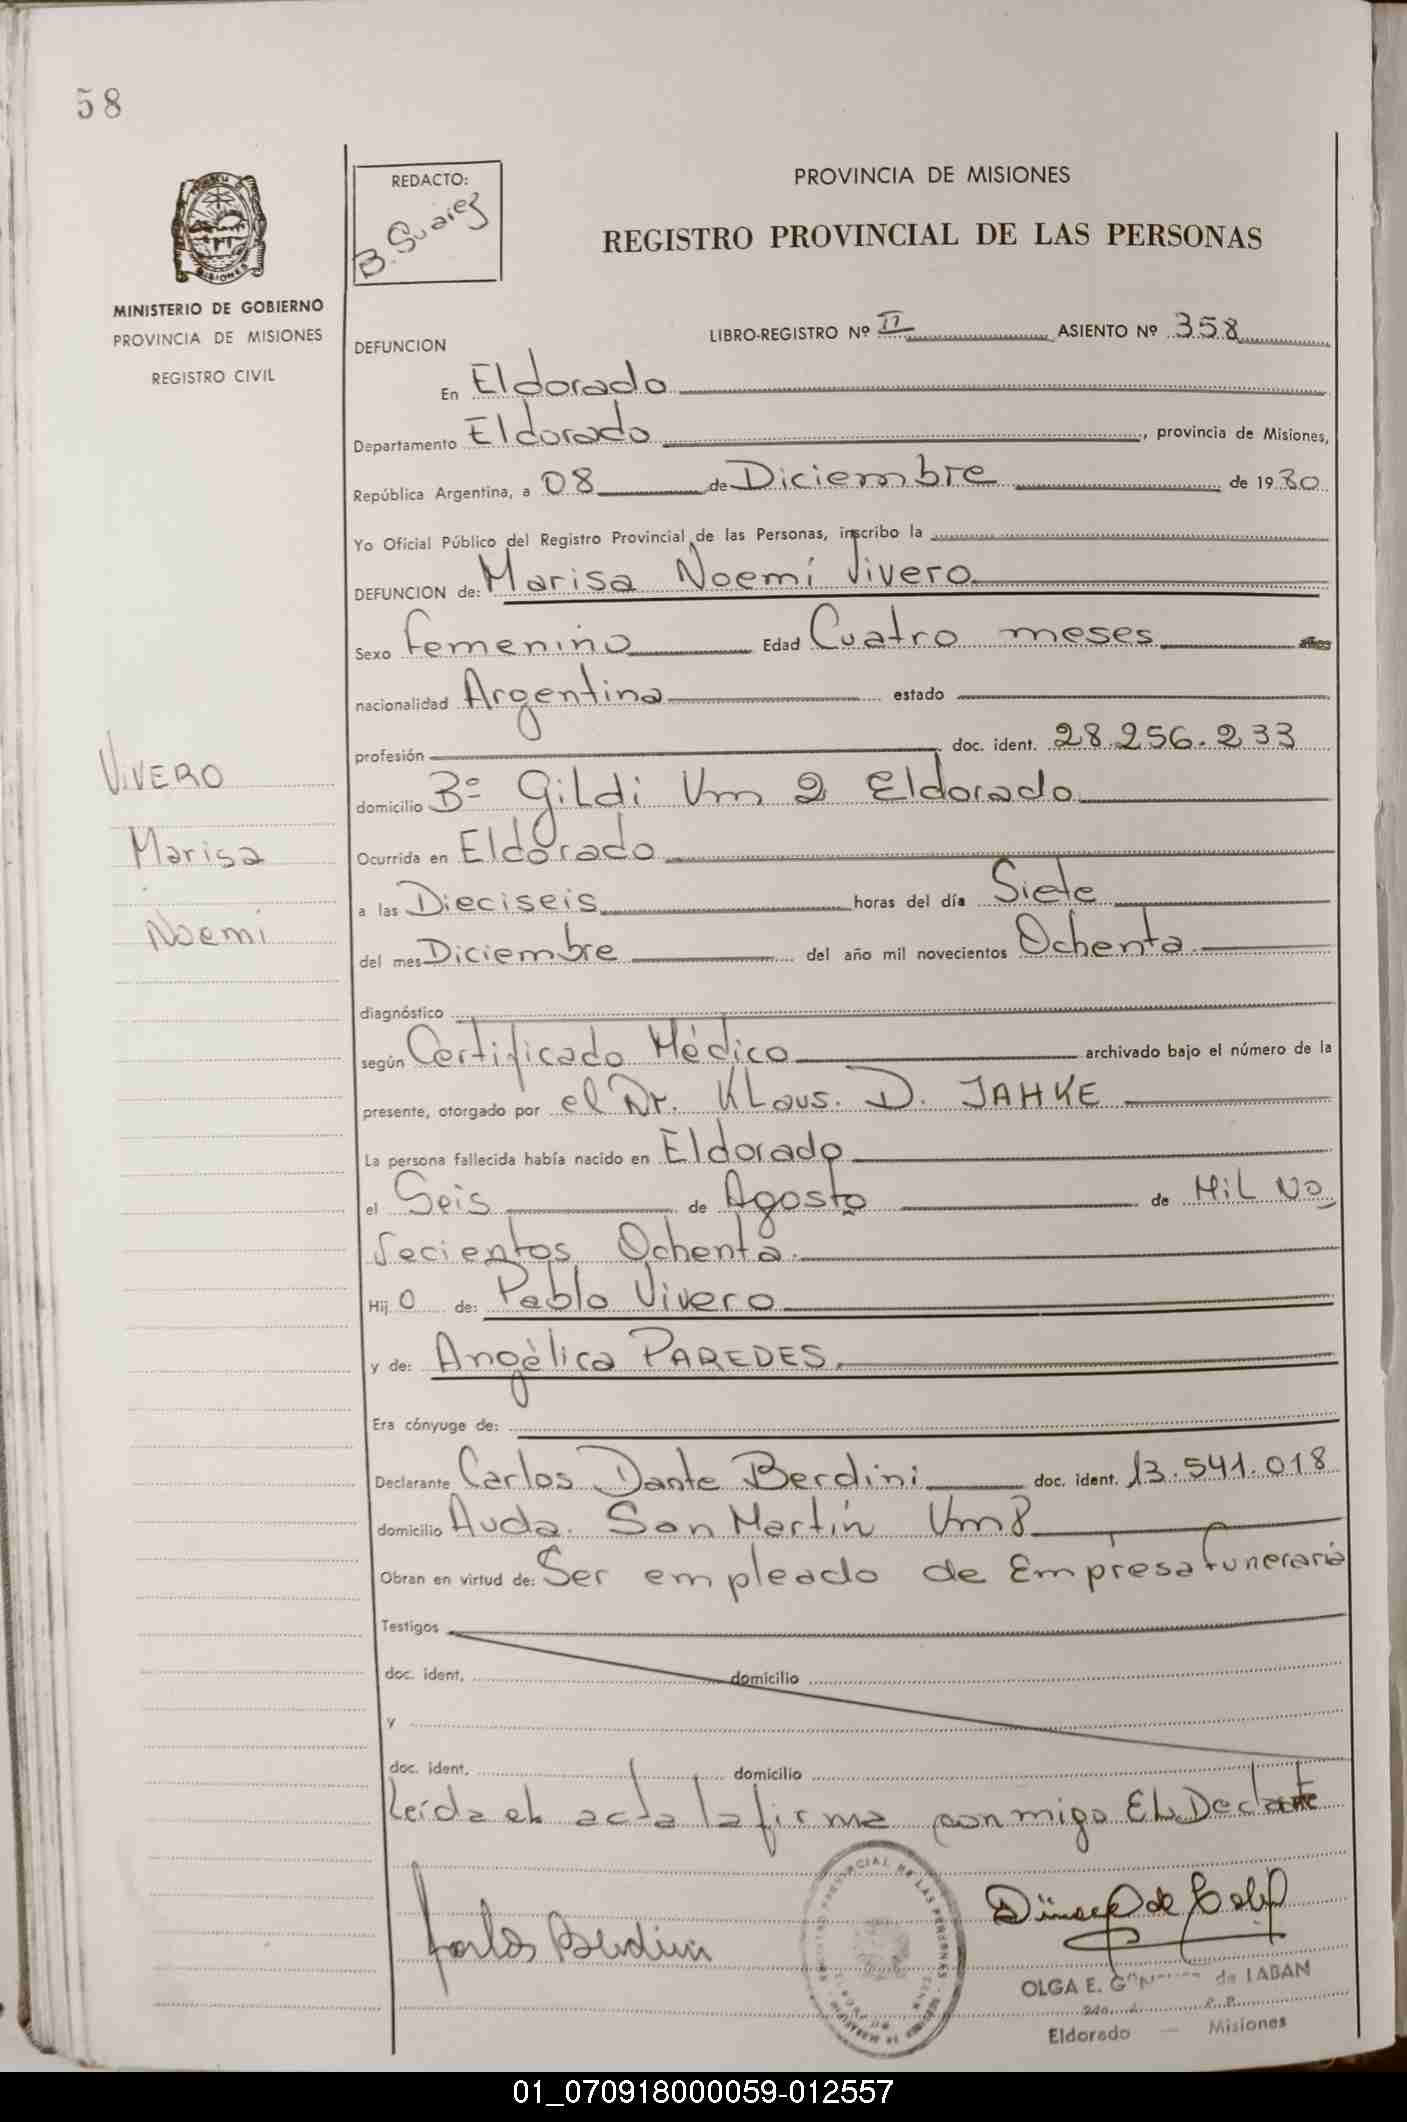 58
REDACTO:
B. Suarez
PROVINCIA DE MISIONES
REGISTRO PROVINCIAL DE LAS PERSONAS
MINISTERIO DE GOBIERNO
PROVINCIA DE MISIONES
REGISTRO CIVIL
DEFUNCION
LIBRO-REGISTRO Nº II ASIENTO Nº 358
En Eldorado
Departamento Eldorado, provincia de Misiones,
República Argentina, a 08 de Diciembre de 1980
Yo Oficial Público del Registro Provincial de las Personas, inscribo la
DEFUNCION de: Marisa Noemí Vivero
Sexo Femenino Edad Cuatro meses
nacionalidad Argentina estado
profesión doc. ident. 28.256.233
domicilio Bº Gildi Km 2 Eldorado
Ocurrida en Eldorado
a las Dieciseis horas del día Siete
del mes Diciembre del año mil novecientos Ochenta
diagnóstico
según Certificado Médico archivado bajo el número de la
presente, otorgado por el Dr. Klaus. D. JAHKE
La persona fallecida había nacido en Eldorado
el Seis de Agosto de Mil No
vecientos Ochenta.
Hij o de: Pablo Vivero
y de: Angélica PAREDES.
Era cónyuge de:
Declarante Carlos Dante Berdini doc. ident. 13.541.018
domicilio Avda. San Martín Km 8
Obran en virtud de: Ser empleado de Empresa funeraria
Testigos
doc. ident. domicilio
y
doc. ident. domicilio
Leída el acta la firma conmigo El Declarante
Carlos Berdini
OLGA E. de LABAN
Eldorado — Misiones
VIVERO
Marisa
Noemi
01_070918000059-012557